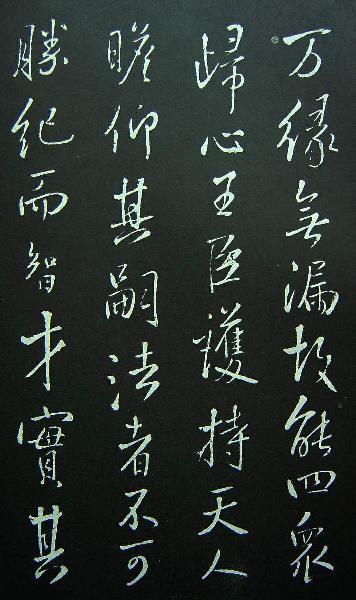 万缘無漏故能四衆
歸心王臣護持天人
瞻仰其嗣法者不可
勝紀而智才實其